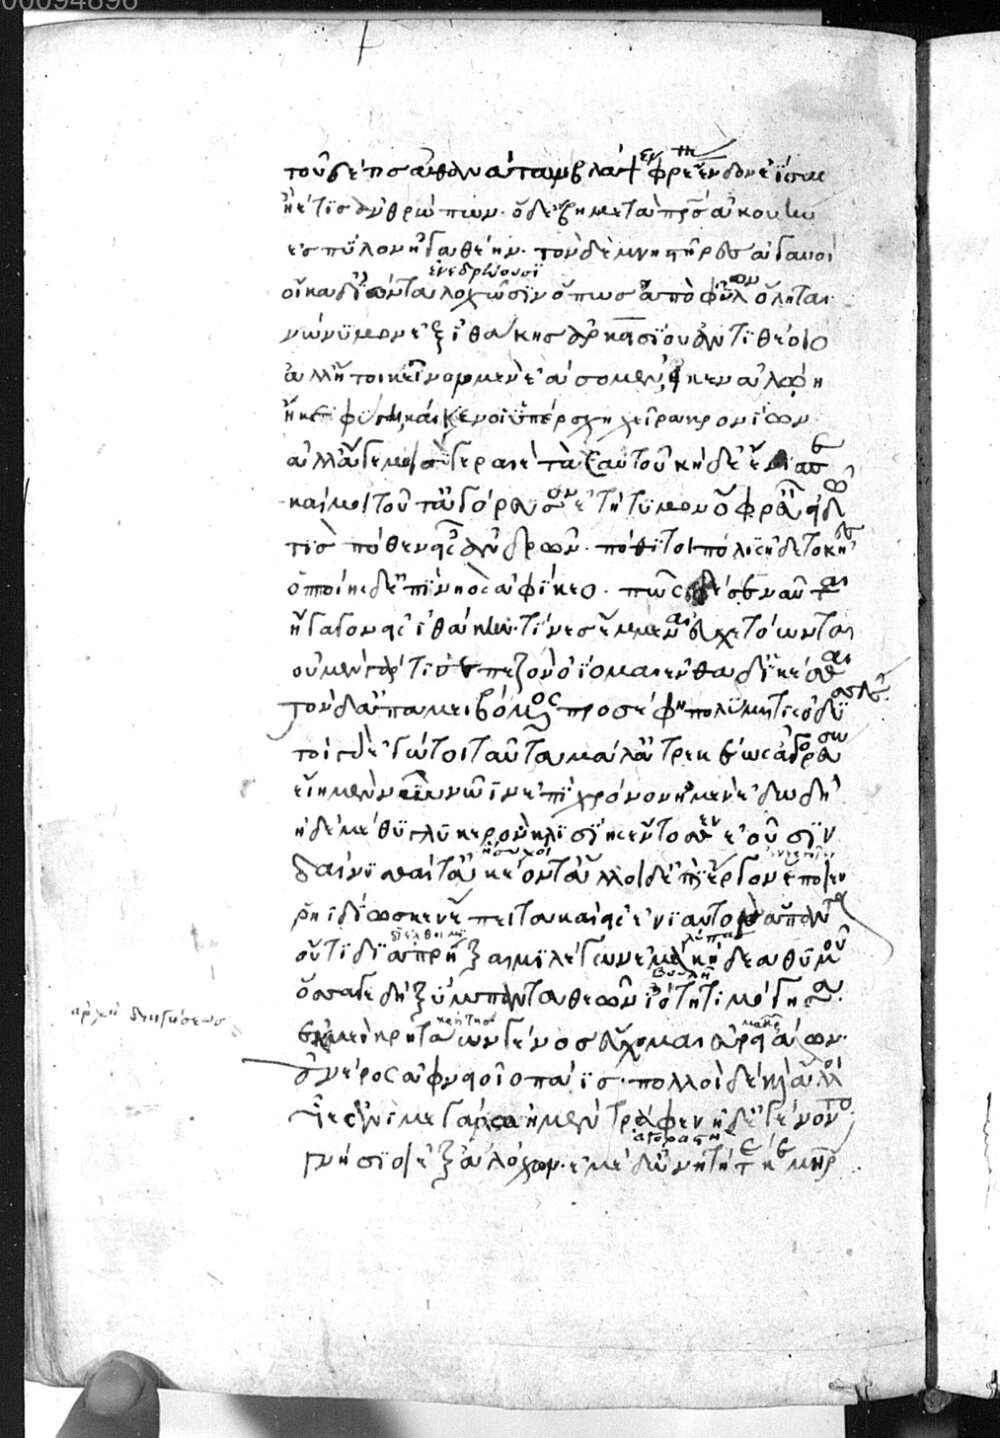 τοῦ δέ τις ἀθανάτων βλάψε φρένας ἔνδον ἐΐσας
ἠέ τις ἀνθρώπων· ὁ δ' ἔβη μετὰ πρς ἀκουὴν
ἐς πύλον ἠγαθέην· τὸν δὲ μνηστῆρες ἀγαυοὶ
ἐνεδρεύουσϊ
οἴκαδ' ϊόντα λοχῶσϊν ὅπως ἀπὸ φῦλον ὄληται
νώνϋμον ἐξ ἰθάκης ἀρκασΐου ἀντϊθέοιο
ἀλλ' ἤτοι κεῖνον μὲν ἐάσομεν, ἤ κεν ἁλώῃ
ἤ κε φύγῃ καί κέν οἱ ὑπέρσχῃ χεῖρα κρονΐων·
ἀλλ' ἄγε μοι σὺ γεραιὲ τὰ σαυτοῦ κήδε' ἔνισπε
καί μοι τοῦτ' ἀγόρευσον ἐτήτυμον ὄφρ' εὖ εἰδῶ
τίς πόθεν εἰς ἀνδρῶν· πόθϊ τοι πόλις ἠδὲ τοκῆες
ὁποίης δ' ἐπὶ νηὸς ἀφΐκεο· πῶς δέ σε ναῦται
ἤγαγον εἰς ἰθάκην· τΐνες ἔμμεναι εὐχετόωνται
οὐ μὲν γάρ τΐ σε πεζὸν ὀΐομαι ἐνθάδ' ἱκέσθαι
τὸν δ' ἀπαμειβόμενος προσέφη πολύμητις ὀδυσσεύς
τοιγὰρ ἐγώ τοι ταῦτα μάλ' ἀτρεκέως ἀγορεύσω
εἴη μὲν νῦν νῶϊν ἐπὶ χρόνον ἠμὲν ἐδωδὴ
ἠδὲ μέθϋ γλϋκερὸν κλϊσΐης ἔντοσθεν ἐοῦσϊν
ἥσυχοι
δαίνϋσθαι τ' ἀκέοντ' ἄλλοι δ' ἐπὶ ἔργον ἕποιεν
ῥηϊδίως κεν ἔπειτα καὶ εἰς ἐνϊαυτὸν ἅπαντα
διέλθοιμϊ λύπας
οὔτϊ δϊαπρήξαιμϊ λέγων ἐμὰ κήδεα θυμοῦ
βουλῇ
ὅσσα γε δὴ ξύμπαντα θεῶν ἰότητι μόγησα·
ἀρχὴ διηγήσεως
κρήτης μακρ
ἐκ μὲν κρητάων γένος εὔχομαι εὐρειάων·
ἀνέρος ἀφνειοῖο πάϊς· πολλοὶ δὲ καὶ ἄλλοι
υἱέες ἐνὶ μεγάρῳ ἠμὲν τράφεν ἠδ' ἐγένοντο
ἀγοραστὴ
γνήσϊοι ἐξ ἀλόχων· ἐμὲ δ' ὠνητὴ τέκε μηρ